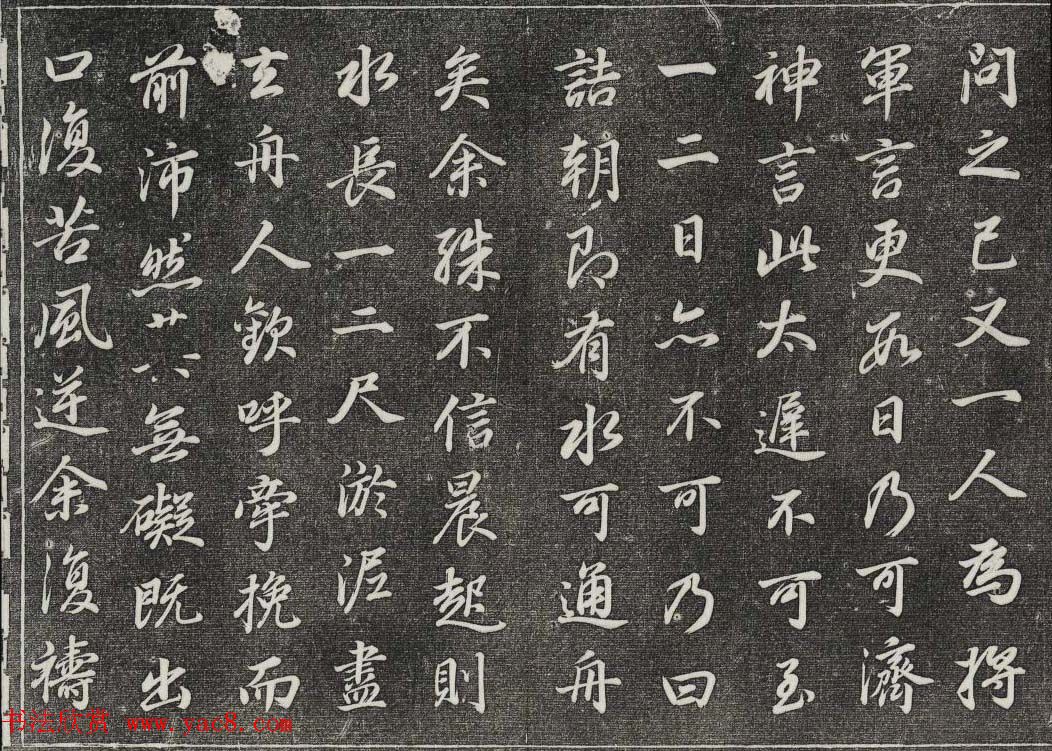 問之已又一人為將
軍言更數日乃可濟
神言此太遲不可至
一二日亦不可乃曰
詰朝即有水可通舟
矣余殊不信晨起則
水長一二尺淤泥盡
去舟人歡呼牽挽而
前沛然無礙既出
口復苦風逆余復禱
书法欣赏 www.yac8.com